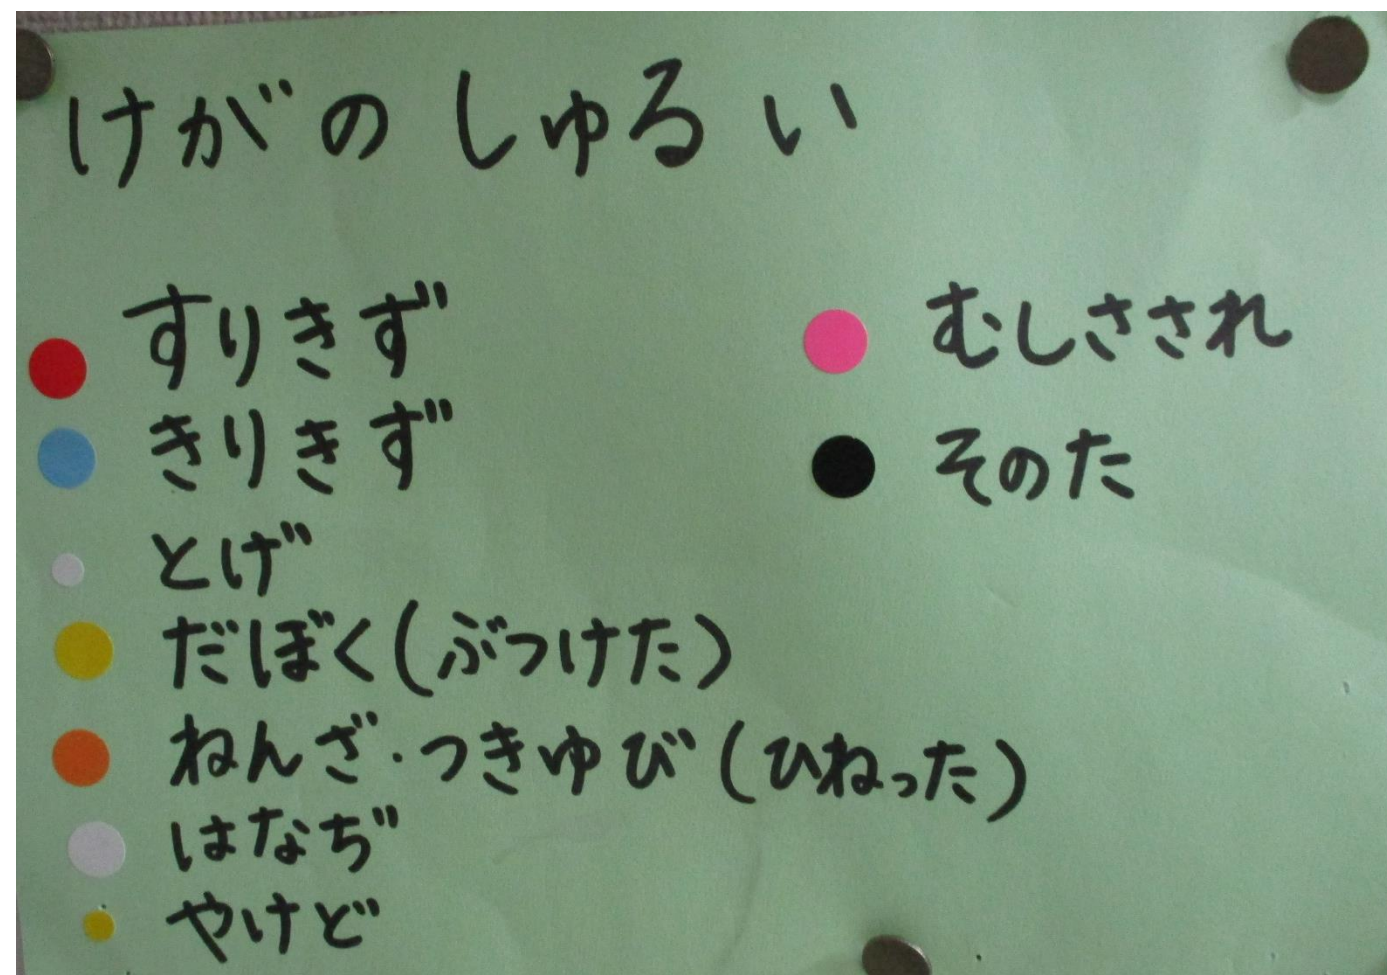 けがのしゅるい
すりきず
きりきず
とげ
だぼく(ぶつけた)
ねんざ・つきゆび(ひねった)
はなぢ
やけど
むしさされ
そのた